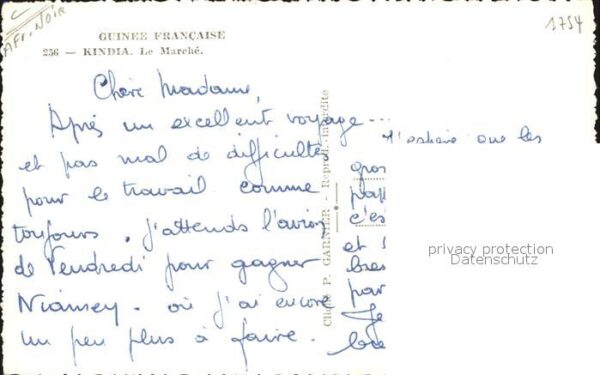 AFR. NOIR
1754
GUINÉE FRANÇAISE
256 — KINDIA. Le Marché.
Chère Madame,
Après un excellent voyage...
et pas mal de difficultés
pour le travail comme
toujours, j'attends l'avion
de Vendredi pour gagner
Niamey - où j'ai encore
un peu plus à faire.
Cliché P. GARNIER - Reprod. interdite
J'espère que les
gros
c'es
et
par
Je
privacy protection
Datenschutz